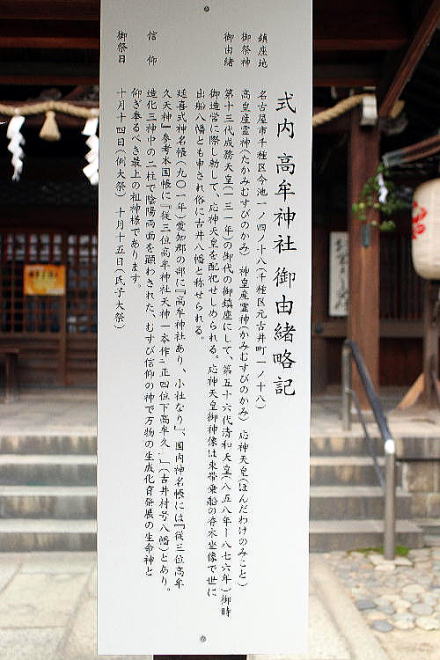 式内 高牟神社 御由緒略記
鎮座地 名古屋市千種区今池一ノ四ノ十八(千種区元古井町一ノ十八)
御祭神 高皇産霊神(たかみむすびのかみ) 神皇産霊神(かみむすびのかみ) 応神天皇(ほんだわけのみこと)
御由緒 第十三代成務天皇(一三一年)の御代の御鎮座にして、第五十六代清和天皇(八五八年ー八七六年)御時
御造営に際し勅して、応神天皇を配祀せしめられる。応神天皇御神像は束帯乗船の香水坐像で世に
出船八幡とも申され俗に古井八幡と称せられる。
延喜式神名帳(九〇一年)愛知郡の部に『高牟神社あり、小社なり』、国内神名帳には『従三位高牟
久天神』参考本国帳に『従三位高牟神社天神一本作ニ正四位下高牟久…』(古井村号八幡)とあり。
信仰 造化三神中の二柱で陰陽両面を顕わされた、むすび信仰の神で万物の生成化育発展の生命神と
仰ぎ奉るべき最上の祖神様であります。
御祭日 十月十四日(例大祭) 十月十五日(氏子大祭)